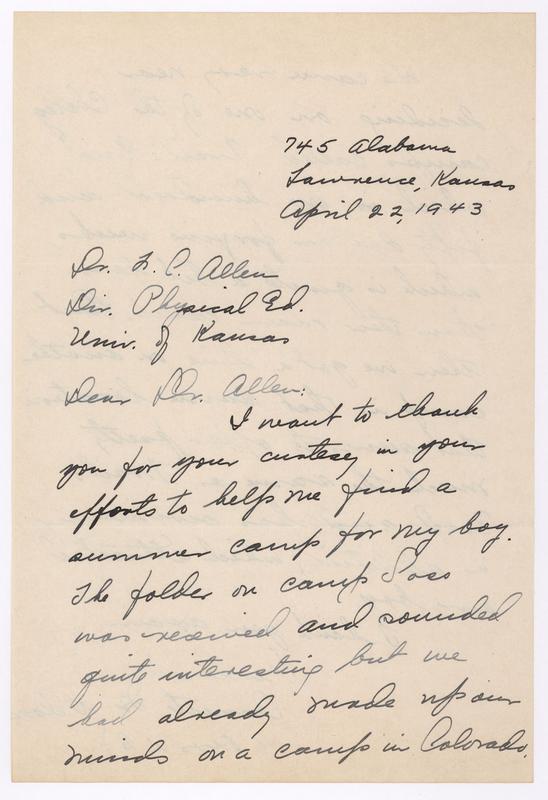 745 Alabama
Lawrence, Kansas
April 22, 1943
Dr. F. C. Allen
Dir. Physical Ed.
Univ. of Kansas
Dear Dr. Allen:
I want to thank
you for your curtesy in your
efforts to help me find a
summer camp for my boy.
The folder on camp
was received and sounded
quite interesting but we
had already made up our
minds on a camp in Colorado.